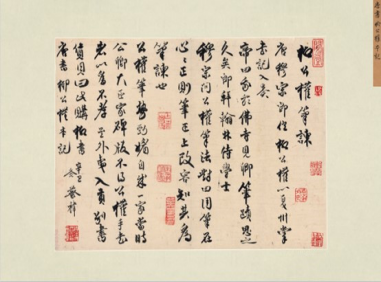 柳公權筆諫
唐穆宗即位柳公權以夏州掌
書記入奏
帝曰我於佛寺見卿筆蹟思之
久矣即拜翰林侍學士
穆宗問公權筆法對曰用筆在
心心正則筆正上改容知其為
筆諫也
公權筆勢勁媚自成一家當時
公卿大臣家碑版不得公權手書
者以為不孝至外夷入貢別書
貨貝曰此購柳書
唐書柳公權本記